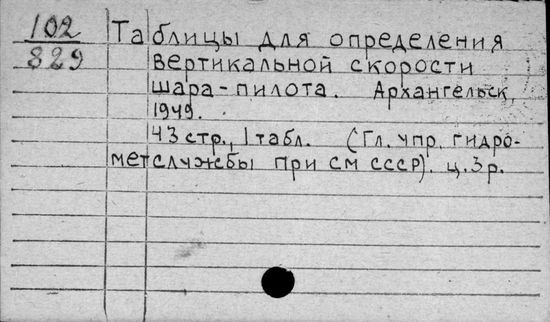 102 Таблицы для определения
829 вертикальной скорости
шара-пилота. Архангельск,
1949.
43 стр., 1 табл. (Гл. упр. гидро-
метслужбы при СМ СССР). ц. 3 р.